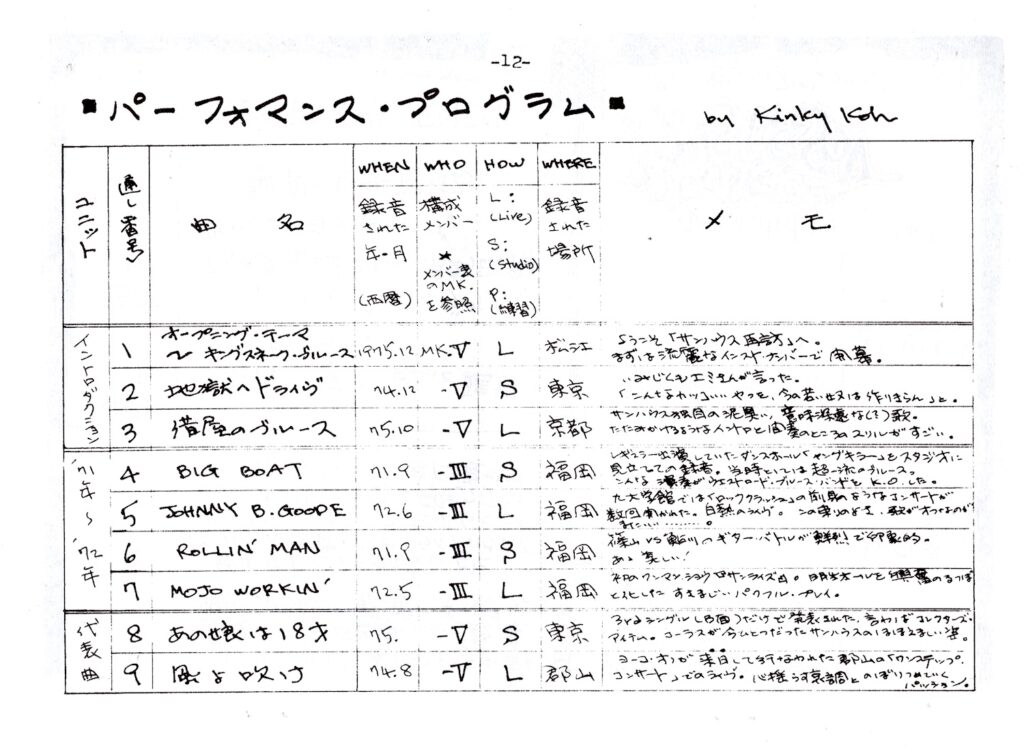 -12-
"パーフォマンス・プログラム" by Kinky Koh
ユニット
通し番号
曲 名
WHEN
録音
された
年・月
(西暦)
WHO
構成
メンバー
★
メンバー表
のMK.
を参照
HOW
L:
(Live)
S:
(Studio)
P:
(練習)
WHERE
録音
された
場所
メ モ
イントロダクション
1 オープニング・テーマ
〜 キングスネーク・ブルース 1975.12 MK.-V L ボムシエ
ようこそ「サンハウス再訪」へ。
まずは流麗なインスト・ナンバーで開幕。
2 地獄へドライヴ 74.12 -V S 東京
いみじくもエミさんが言った。
「こんなカッコ…やつを、今の若い奴は作りきらん」と。
3 借屋のブルース 75.10 -V L 京都
サンハウス独目の泥臭い、意味深長な(?)歌。
たたみかけるようなイントロと間奏のところのスリルがすごい。
'71年〜'72年
4 BIG BOAT 71.9 -III S 福岡
レギュラー出演していたダンスホール「ヤングキラー」をスタジオに
見立てての録音。当時としては超一流のブルース。
こんな演奏がウエストロード・ブルース・バンドをK.O.した。
5 JOHNNY B. GOODE 72.6 -III L 福岡
九大学館では「ロッククラッシュ」の前身のようなコンサートが
数回開かれた。白熱のライヴ。この乗りのよさ、歌がオフなのが
6 ROLLIN' MAN 71.9 -III S 福岡
篠山VS鮎川のギター・バトルが鮮烈で印象的。
ああ美しい!
7 MOJO WORKIN' 72.5 -III L 福岡
初のワンマン・ショウ『サンライズ』。明治ホールを興奮のるつぼ
と化したすさまじいパワフル・プレイ。
代表曲
8 あの娘は18才 75. -V S 東京
3rdシングル(B面)だけで発表された、言わばコレクターズ・
アイテム。コーラスが今ひとつだったサンハウスのほほえましい姿。
9 風よ吹け 74.8 -V L 郡山
ヨーコ・オノが来日して行なわれた郡山の「ワンステップ・
コンサート」でのライヴ。心揺らす哀調とのぼりつめていく
パッション。